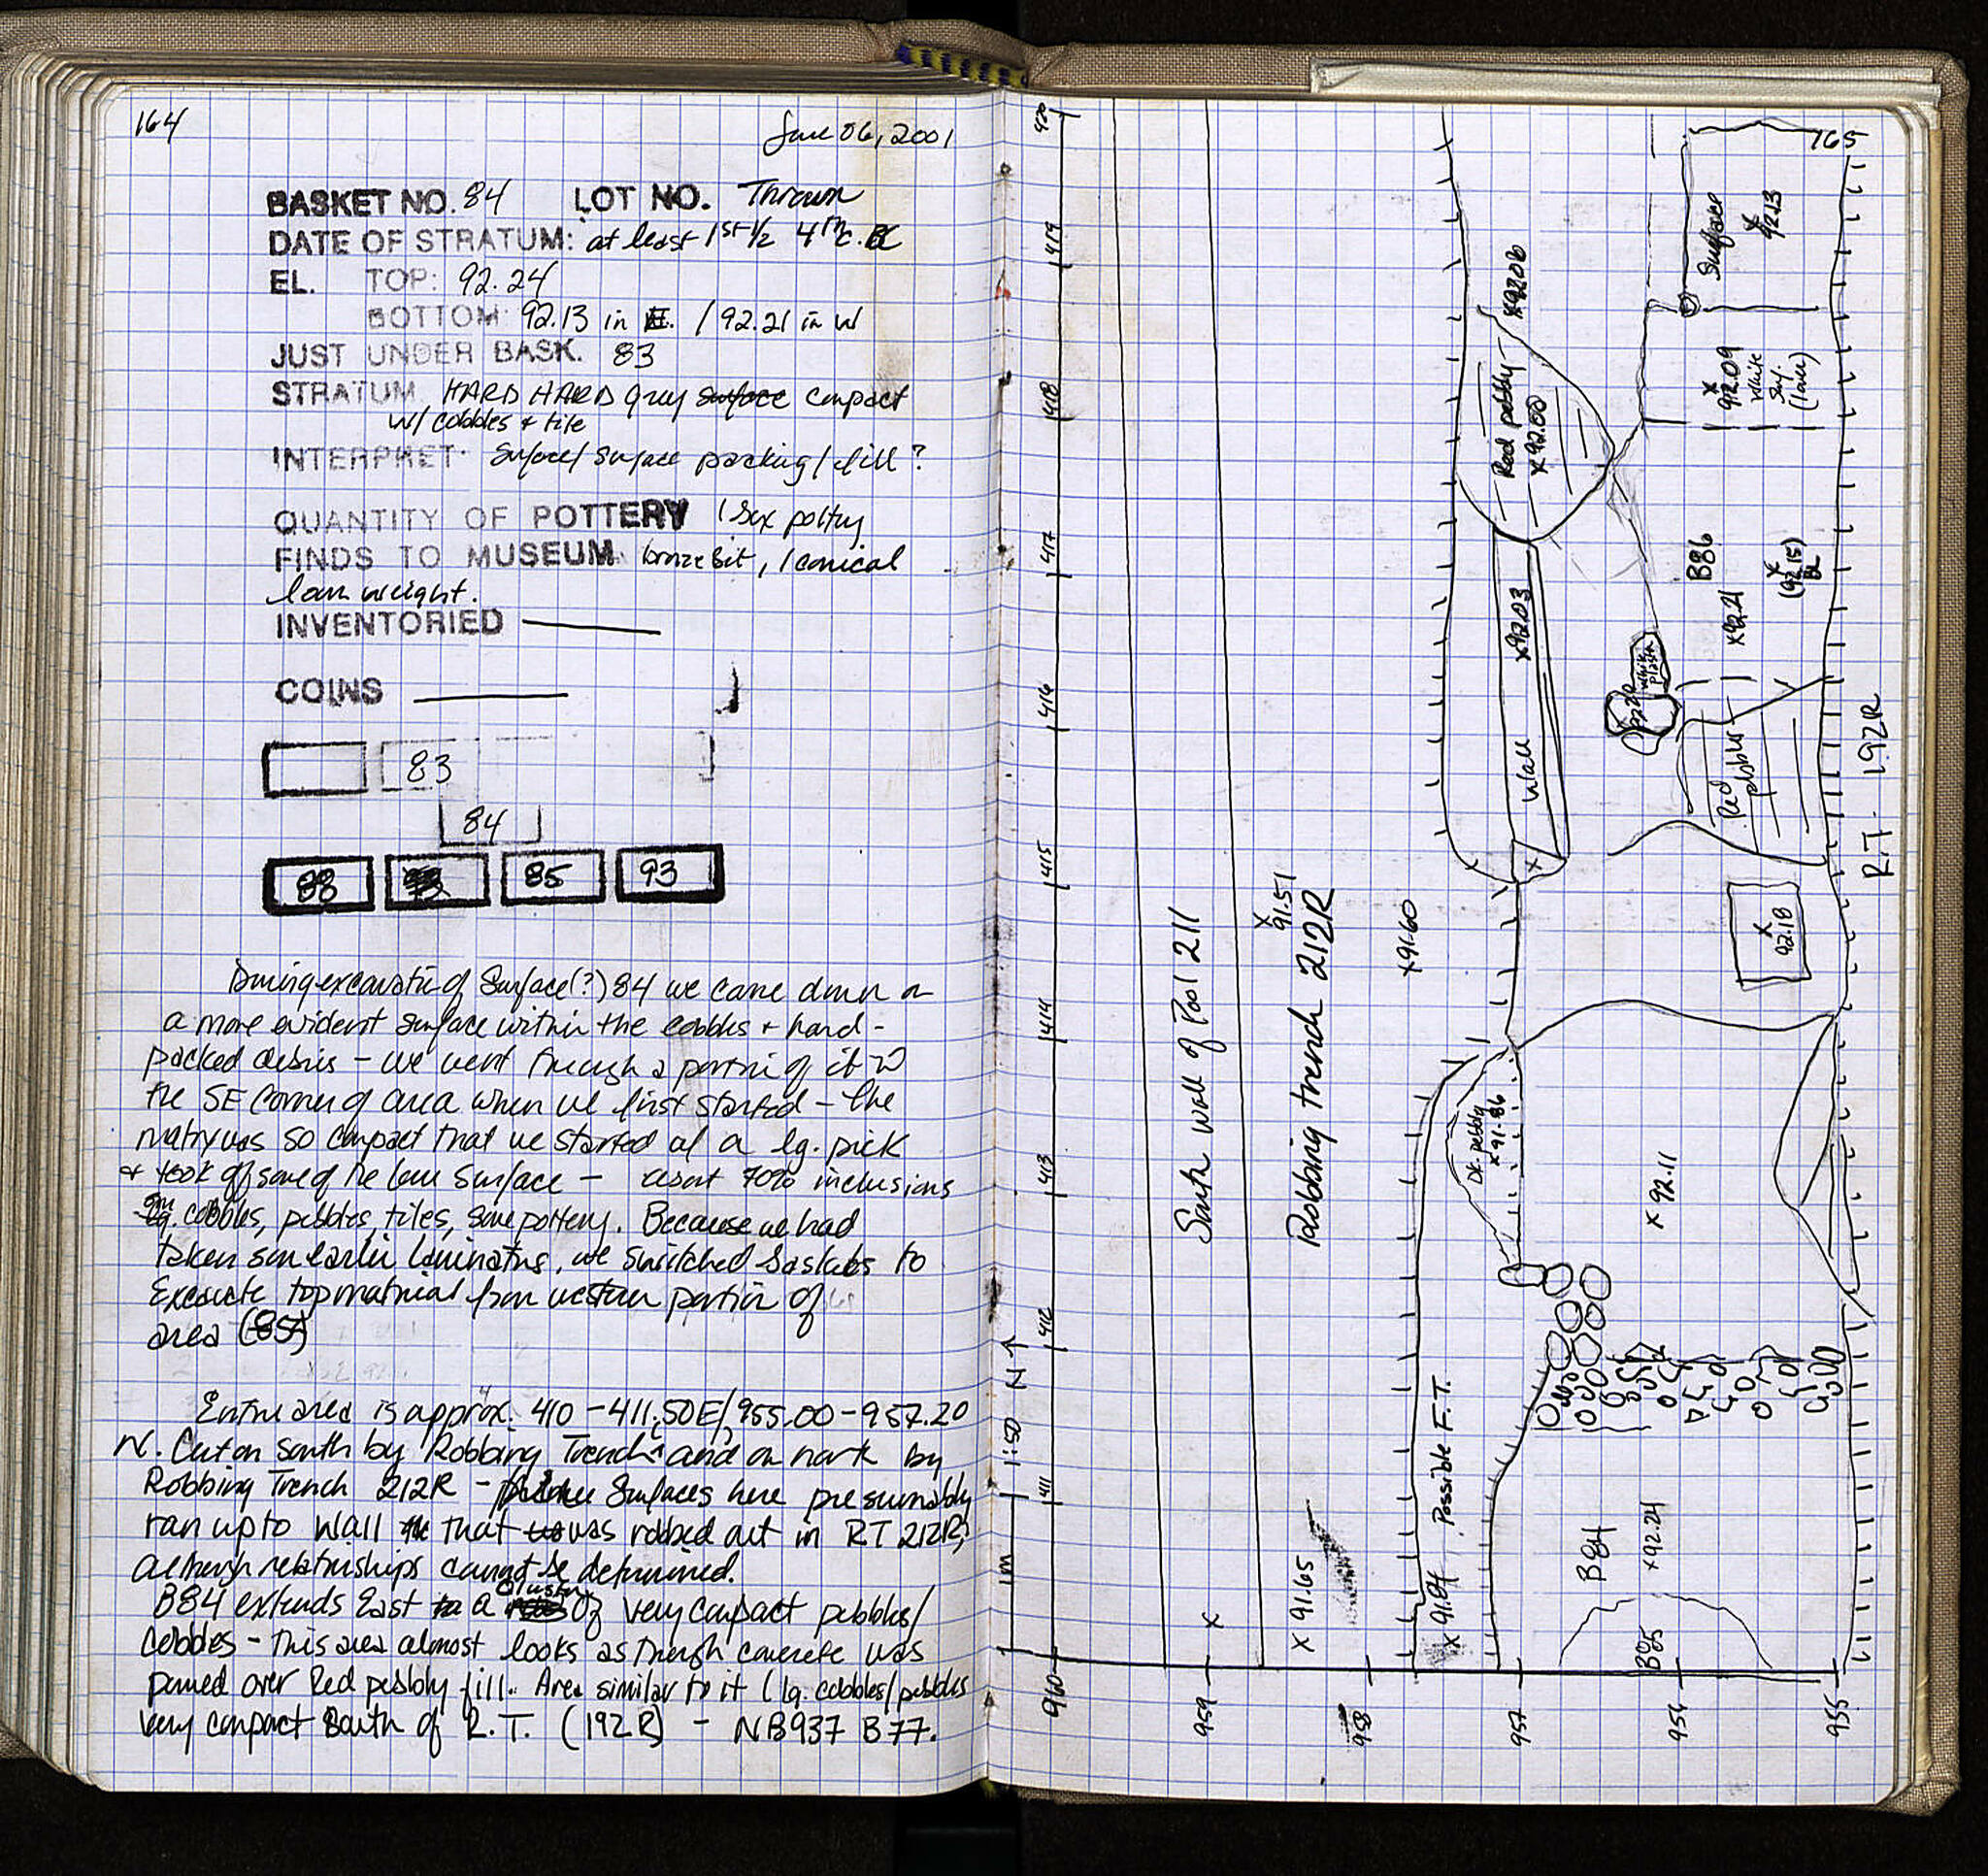 164
June 06, 2001
BASKET NO. 84 LOT NO. Thrown
DATE OF STRATUM: at least 1st 1/2 4th c. BC
EL. TOP: 92.24
BOTTOM: 92.13 in E. / 92.21 in W
JUST UNDER BASK. 83
STRATUM HARD HARD grey surface compact
w/ cobbles + tile
INTERPRET. Surface/ Surface packing / fill ?
QUANTITY OF POTTERY 1 box pottery
FINDS TO MUSEUM bronze bit, 1 conical
loom weight.
INVENTORIED
COINS
83
84
88 85 93
During excavation of Surface(?) 84 we came down on
a more evident surface within the cobbles + hard-
packed debris - we went through a portion of it in
the SE corner of area when we first started - the
matrix was so compact that we started w/ a lg. pick
+ took off some of the lower surface - about 70% inclusions
sm. cobbles, pebbles, tiles, some pottery. Because we had
taken some earlier laminations, we switched baskets to
excavate top material from western portion of
area (85)
Entire area is approx. 410-411.50E/955.00-957.20
N. Cut on south by Robbing Trench and on north by
Robbing Trench 212R - Surfaces here presumably
ran up to wall that was robbed out in RT 212R,
although relationships cannot be determined.
B84 extends East to a cluster of very compact pebbles/
cobbles - this area almost looks as though concrete was
poured over Red pebbly fill. Area similar to it (lg. cobbles/pebbles
very compact South of R.T. (192R) - NB937 B77.
165
420
419
418
417
416
415
414
413
412
411
1:50 N
1m
960
959
958
957
956
955
South wall of Pool 211
Robbing trench 212R
X 91.51
X 91.60
X 91.65
X
Possible F.T.
X 91.84
Dk. pebbly
X 91.86
Wall X 92.03
Red pebbly
X 92.00
X 92.06
Surface
X 92.13
X 92.09
White
Surf.
(lower)
B86
X 92.21
X
(92.15)
BL
White
Plaster
92.20
Red
pebbles
X
92.18
X 92.11
B84
X 92.24
B85
R.T. 192R